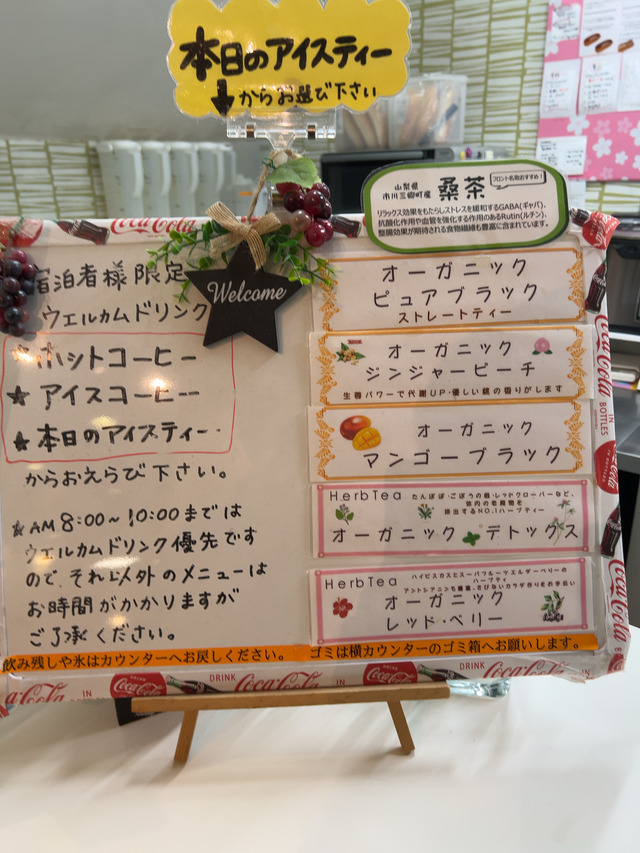 本日のアイスティー
↓からお選び下さい
山梨県
市川三郷町産
桑茶
フロント名物おすすめ!
リラックス効果をもたらしストレスを緩和するGABA(ギャバ)、
抗酸化作用や血管を強化する作用のあるRutin(ルチン)、
整腸効果が期待される食物繊維も豊富に含まれています。
Welcome
宿泊者様限定
ウェルカムドリンク
★ホットコーヒー
★アイスコーヒー
★本日のアイスティー
からおえらび下さい。
★AM8:00~10:00までは
ウェルカムドリンク優先です
ので、それ以外のメニューは
お時間がかかりますが
ご了承ください。
オーガニック
ピュアブラック
ストレートティー
オーガニック
ジンジャーピーチ
生姜パワーで代謝UP・優しい桃の香りがします
オーガニック
マンゴーブラック
HerbTea
たんぽぽ・ごぼうの根・レッドクローバーなど、
体内の老廃物を
排出するNO.1ハーブティー
オーガニック デトックス
HerbTea
ハイビスカスとスーパーフルーツエルダーベリーの
ハーブティ
アントシアニンも豊富、さびないカラダ作りをお手伝い
オーガニック
レッド・ベリー
飲み残しや氷はカウンターへお戻しください。
ゴミは横カウンターのゴミ箱へお願いします。
DRINK
Coca-Cola
IN BOTTLES